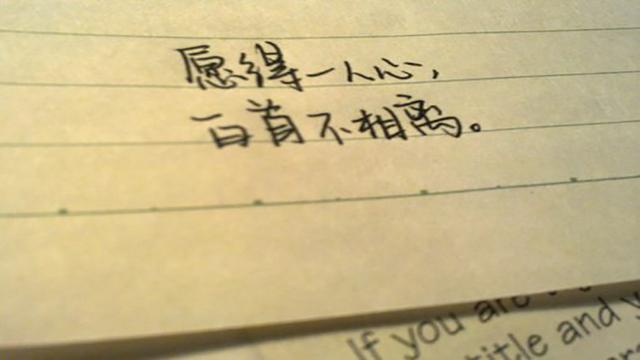 愿得一人心，
百首不相离。
If you are
title and